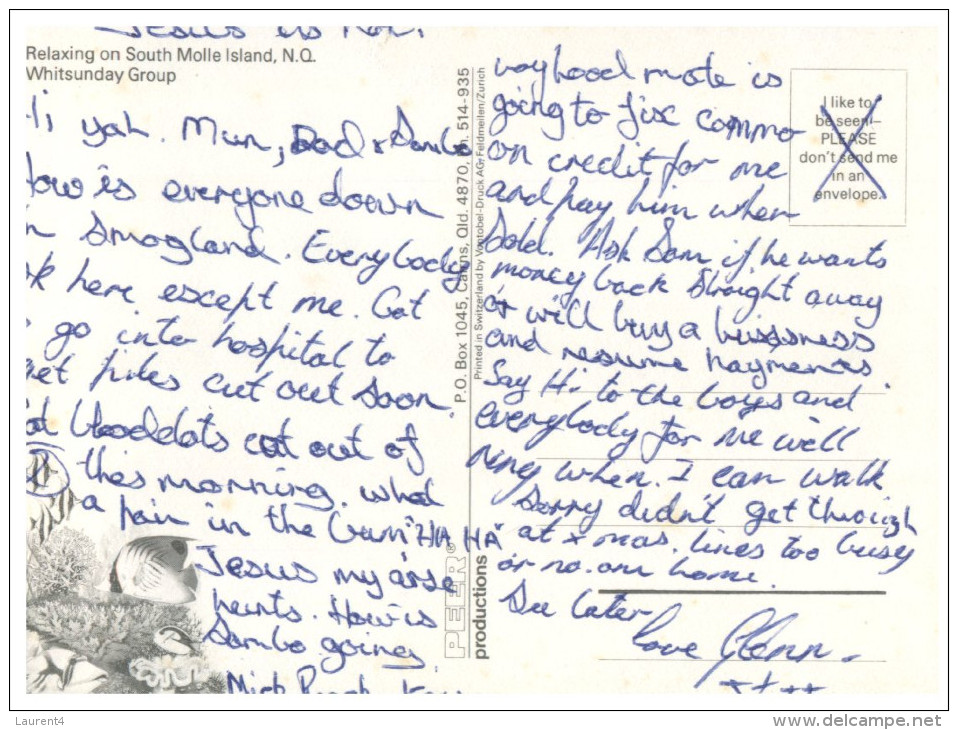 Jesus its Hot.
Relaxing on South Molle Island, N.Q.
Whitsunday Group
Hi yah. Mum, Dad & Sambo
How is everyone down
in Smogland. Everybody
ok here except me. Got
to go into hospital to
get piles cut out soon.
Got bloodclots cut out of
this morning. what
a pain in the bum "HA HA"
Jesus my arse
hurts. How is
Sambo going.
Mick
boyhood mate is
going to fix commo
on credit for me
and pay him when
Sold. Ask Sam if he wants
money back straight away
or will buy a bussness
and resume payments.
Say Hi to the boys and
everybody for me will
ring when I can walk
Sorry didn't get through
at xmas. lines too busy
or no. one home.
See Later
love Glenn.
x x x x
I like to
be seen—
PLEASE
don't send me
in an
envelope.
P.O. Box 1045, Cairns, Qld. 4870, Ph. 514-935
Printed in Switzerland by Vontobel-Druck AG, Feldmeilen/Zurich
PEER®
productions
Laurent4
delcampe.net